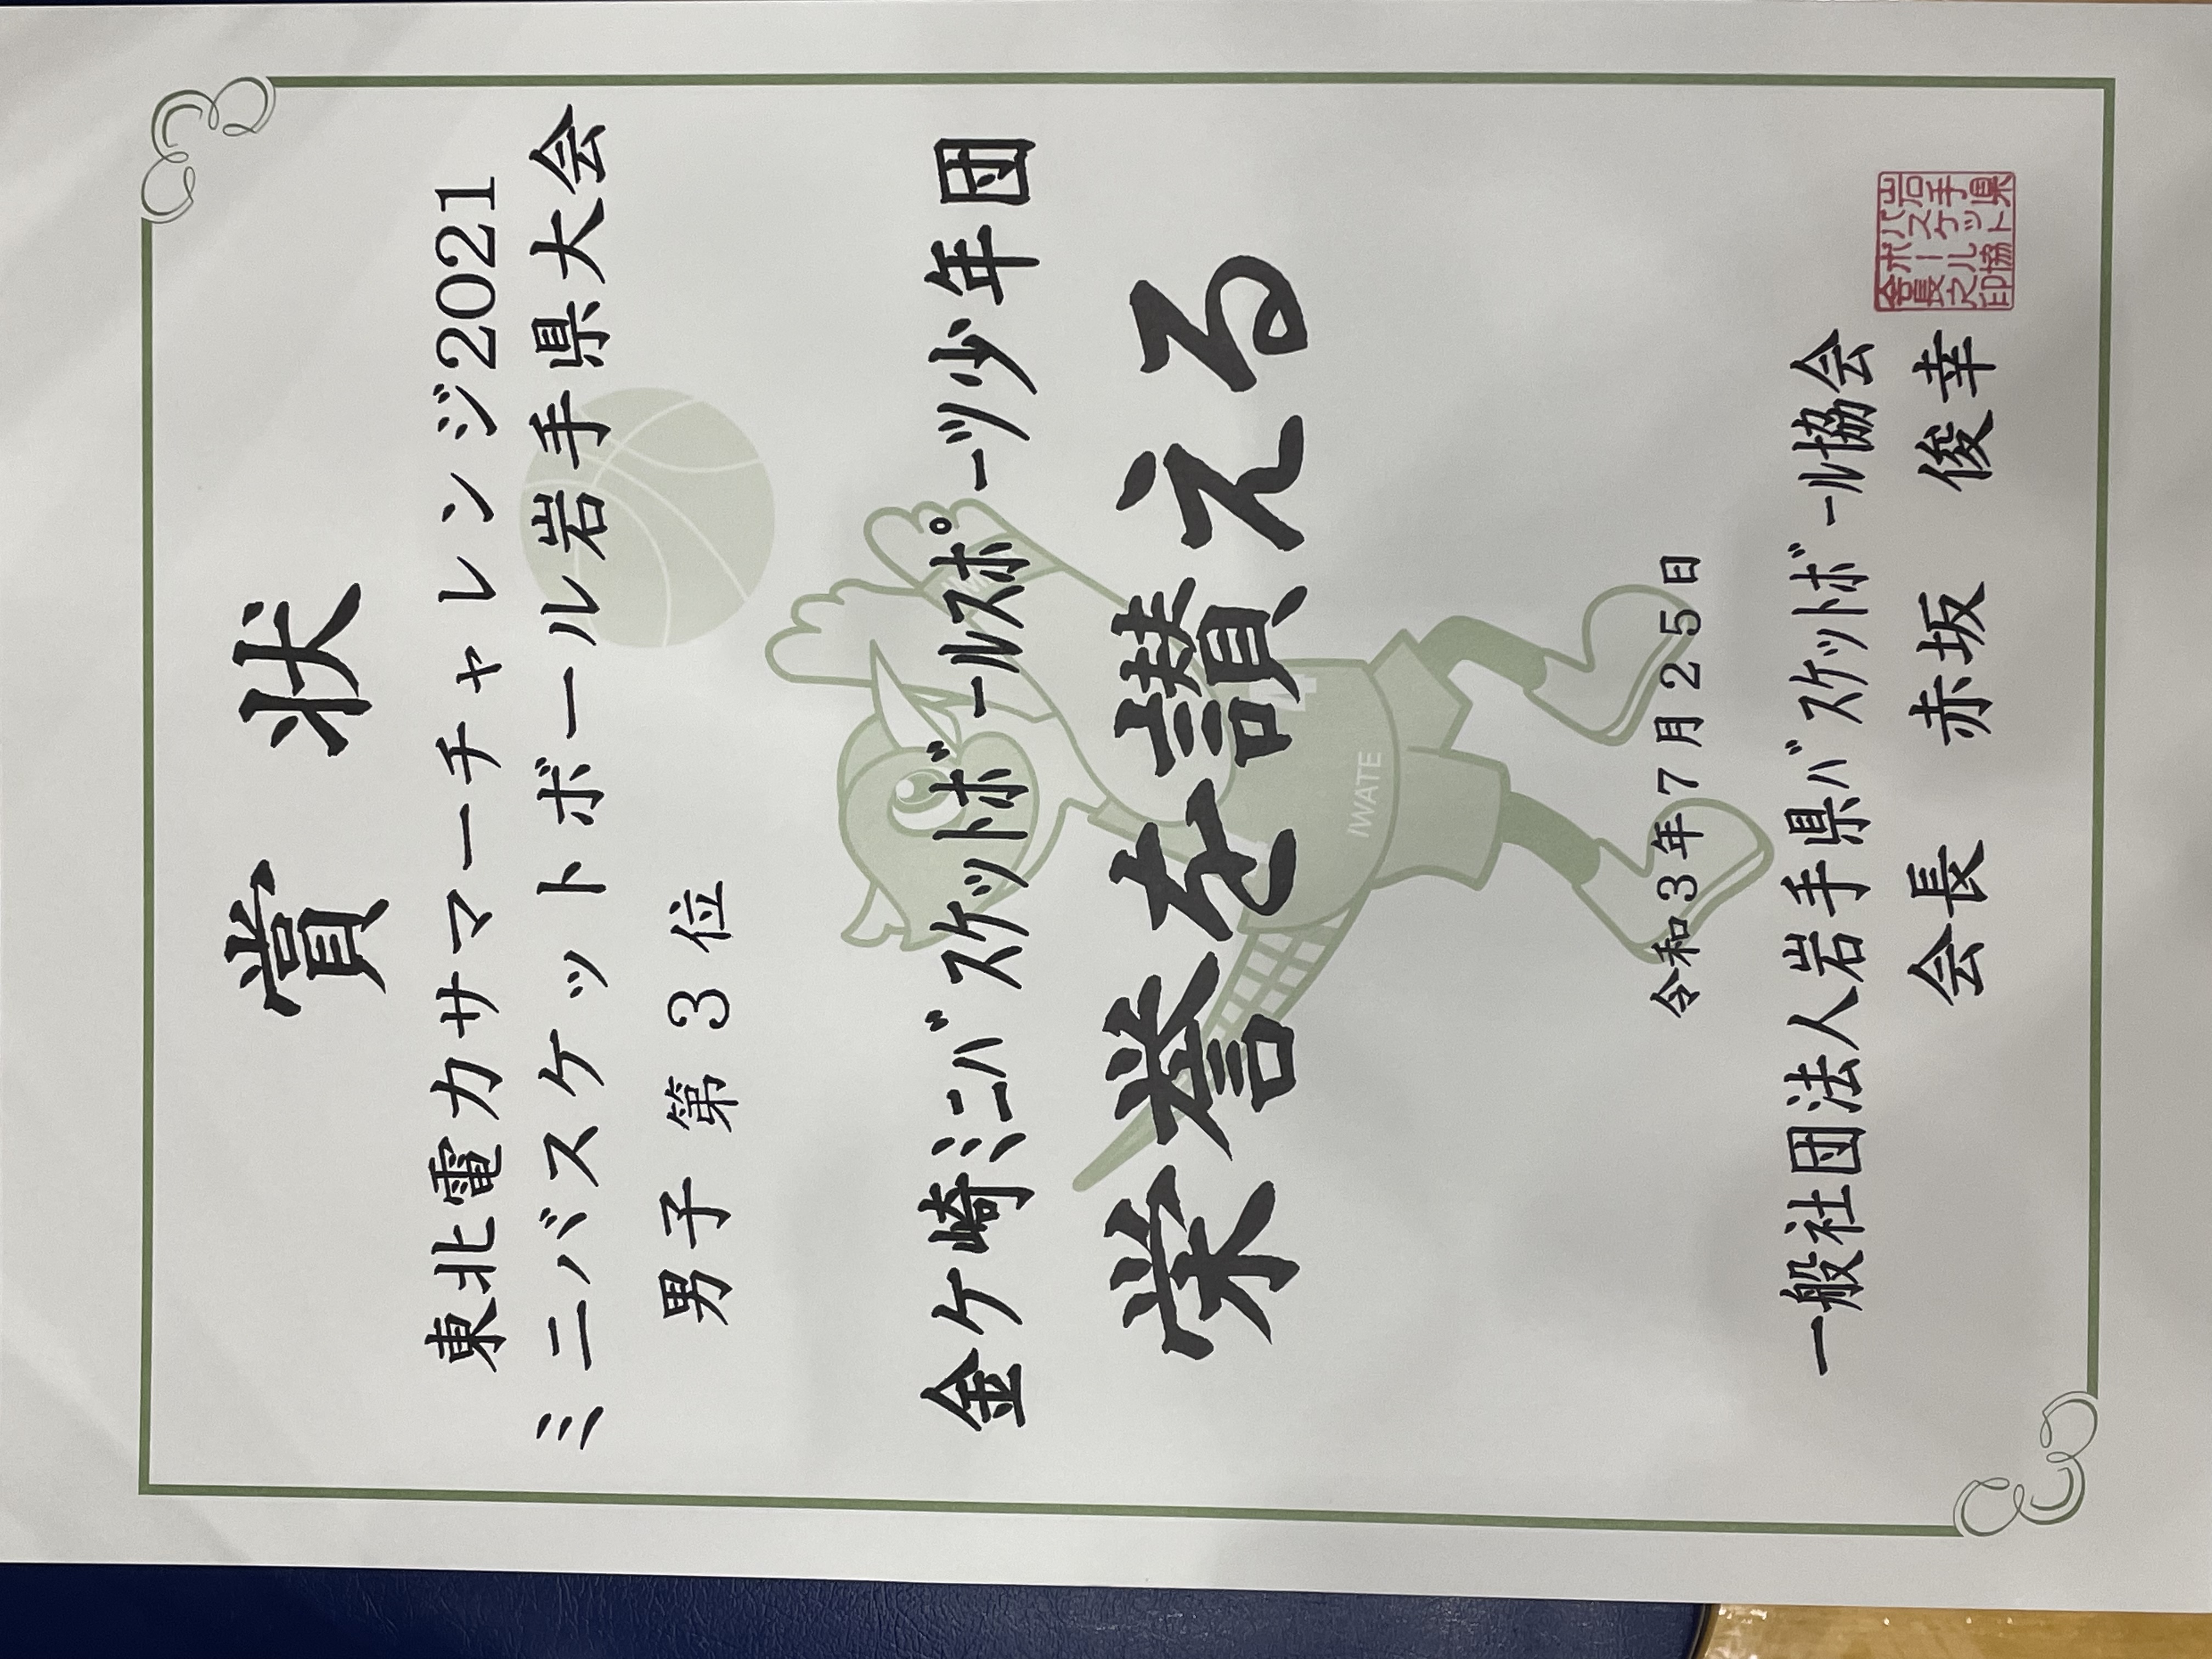 賞状
東北電力サマーチャレンジ2021
ミニバスケットボール岩手県大会
男子 第 3 位
金ケ崎ﾐﾆﾊﾞｽｹｯﾄﾎﾞｰﾙｽﾎﾟｰﾂ少年団
栄誉を讃える
4
IWATE
令和3年7月25日
一般社団法人岩手県ﾊﾞｽｹｯﾄﾎﾞｰﾙ協会
会長 赤坂 俊幸
岩手県
バスケット
ボール協
会長之印